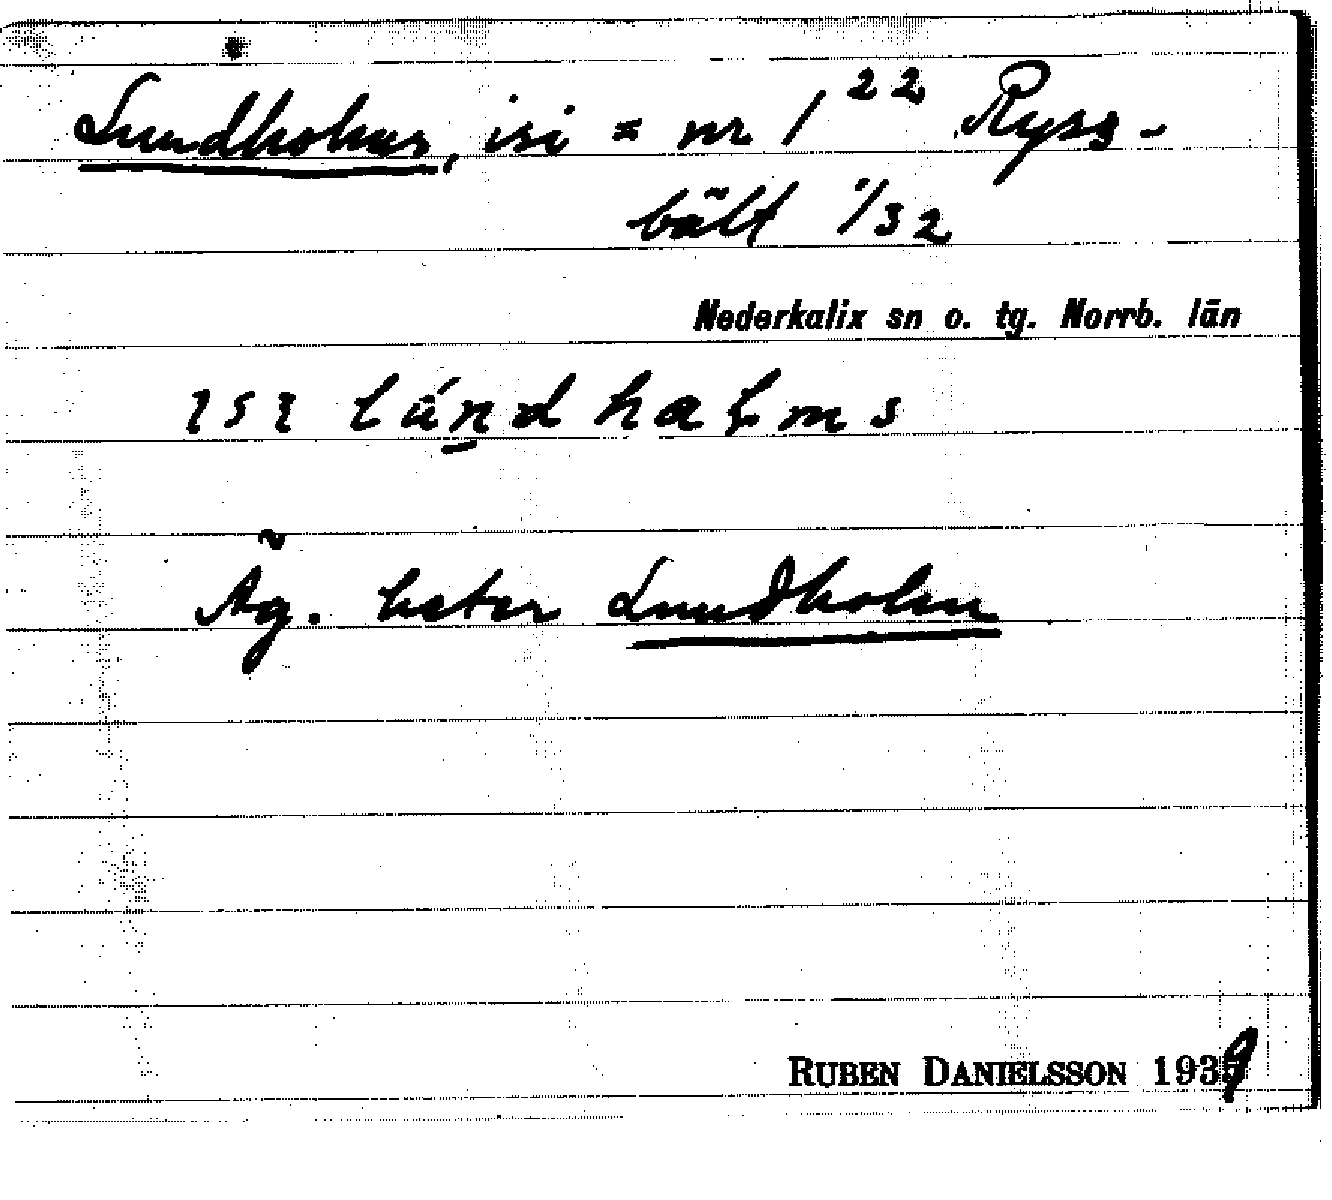 Lundholms, isi = nr 1²² Ryss-
bält 1/32
Nederkalix sn o. tg. Norrb. län
ɩsɩ lúṉdhalms
Äg. heter Lundholm
RUBEN DANIELSSON 1939